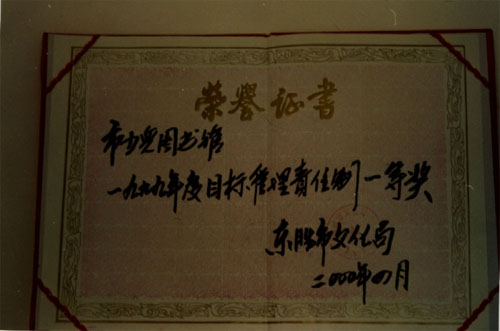 荣誉证书
市少儿图书馆
一九九九年度目标管理责任制一等奖
东胜市文化局
二000年四月